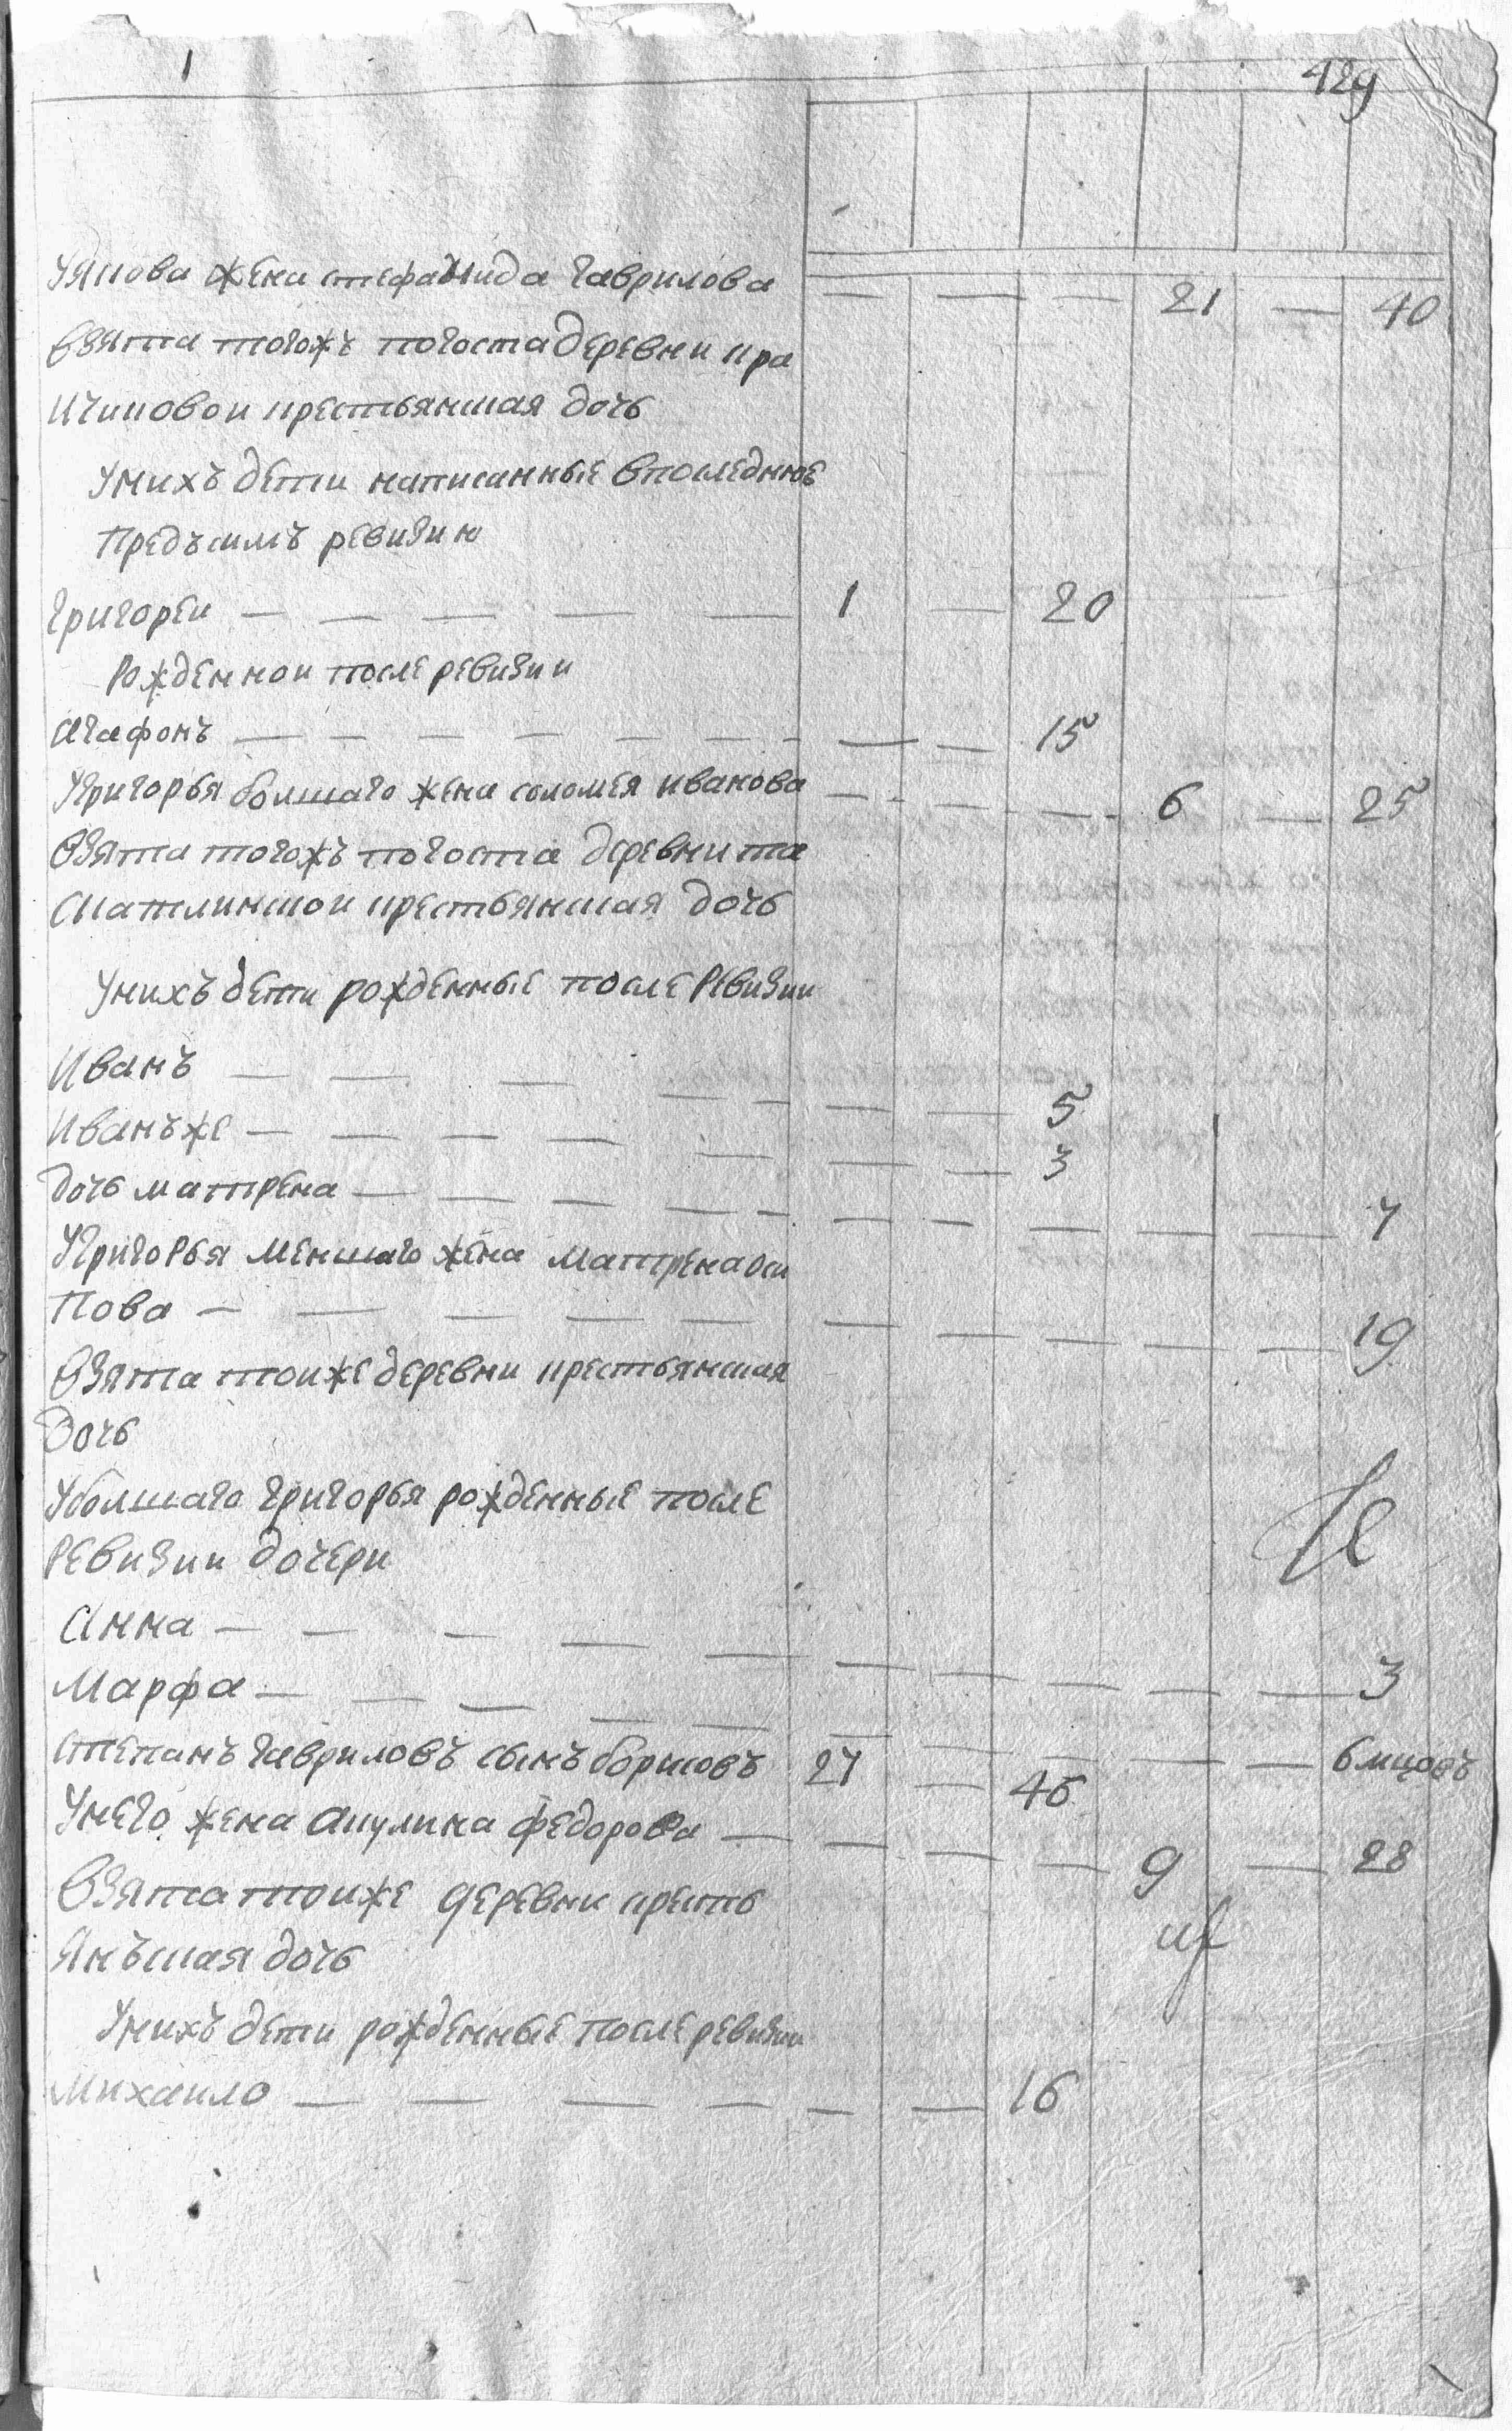 1 429
Уякова жена стефанида гаврилова — — — 21 — 40
взята тогожъ погоста деревни кра
ичиковои крестьянская дочь
Унихъ дети написанные впоследнюе
Предъсимъ ревизию
Григореи — — — — — 1 — 20
Рожденнои после ревизии
Агафонъ — — — — — — — — — 15
Угригорья болшаго жена соломея иванова — — — — 6 — 25
Взята тогожъ погоста деревни та
скатлинской крестьянская дочь
Унихъ дети рожденные после Ревизии
Иванъ — — — — — — — 5
Иванъже — — — — — — — 3
дочь матрена — — — — — — — — — — 7
Угригорья меншаго жена матрена оси
Пова — — — — — — — — — — 19
Взята тоиже деревни крестьянская
Дочь
Уболшаго григорья рожденные после
Ревизии дочери
Анна — — — — — — — — — — 3
Марфа — — — — — — — — — — 6 мцовъ
степанъ гавриловъ сынъ борисовъ 27 — 46
Унего жена акулина федорова — — — — 9 — 28
Взята тоиже деревни кресть
Янъская дочь
Унихъ дети рожденные после ревизии
Михаило — — — — — — 16